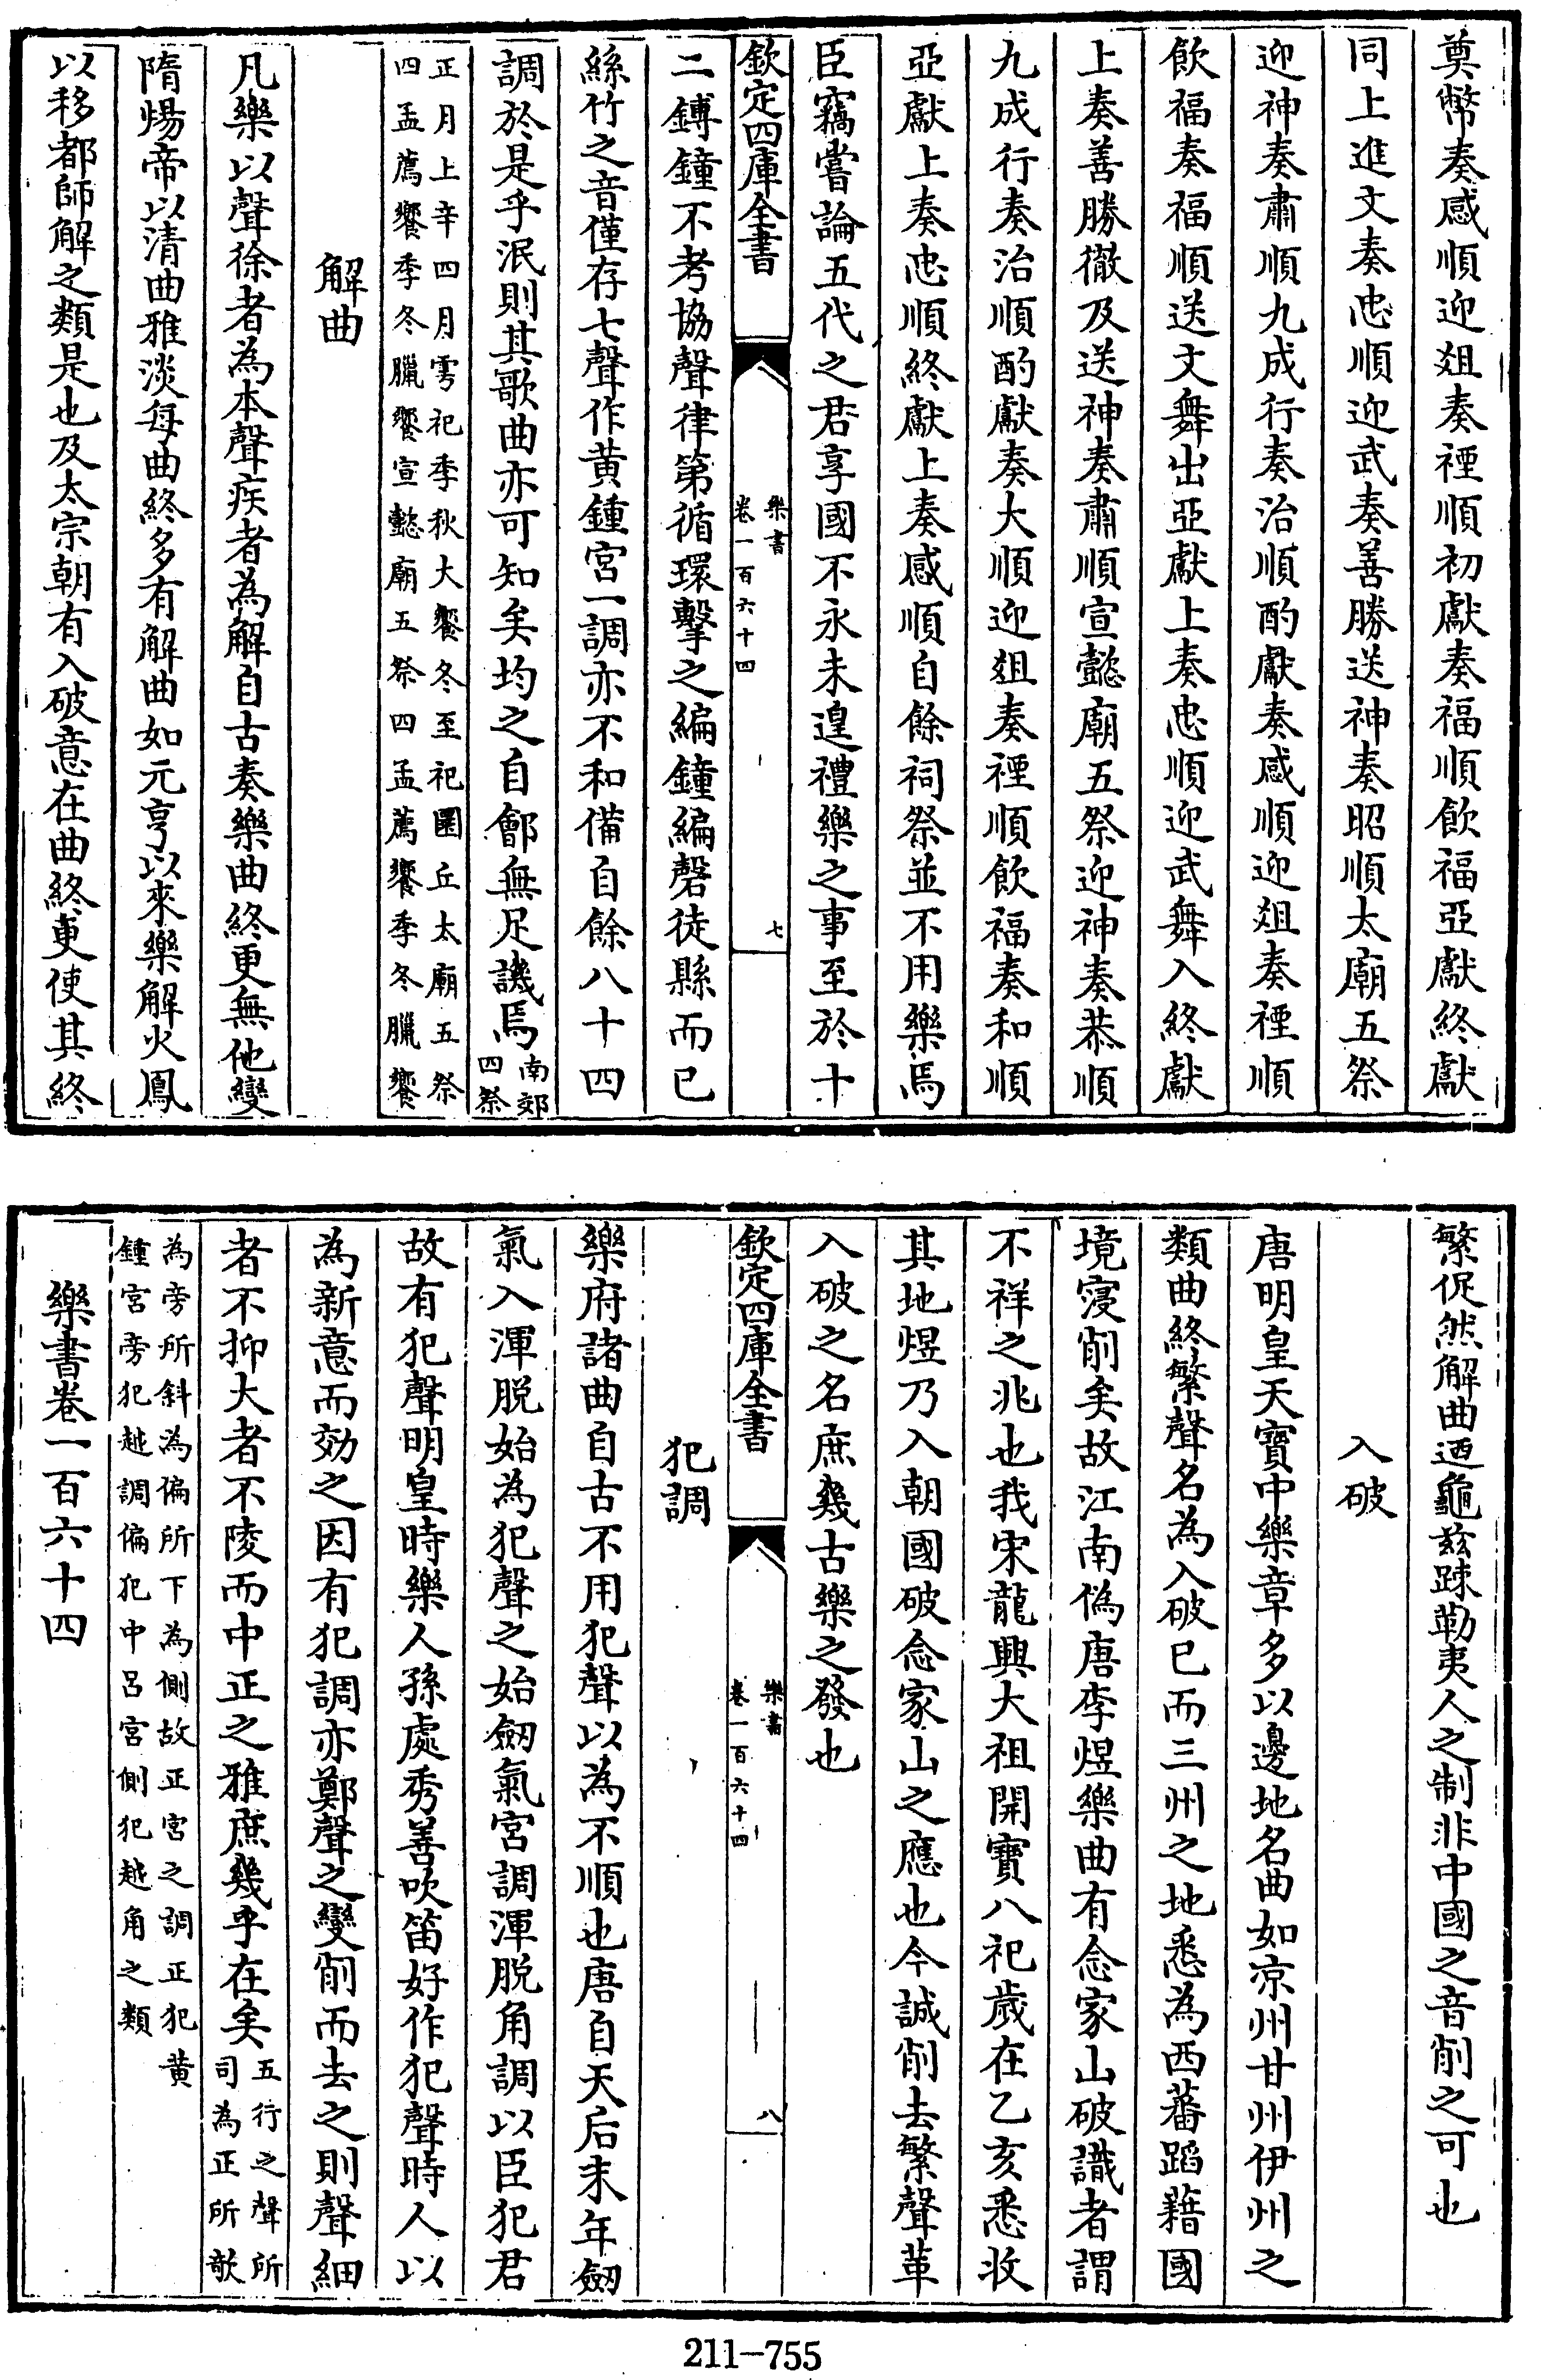 奠幣奏感順迎爼奏禋順初獻奏福順飲福亞獻終獻
同上進文奏忠順迎武奏善勝送神奏昭順太廟五祭
迎神奏肅順九成行奏治順酌獻奏感順迎爼奏禋順
飲福奏福順送文舞出亞獻上奏忠順迎武舞入終獻
上奏善勝徹及送神奏肅順宣懿廟五祭迎神奏恭順
九成行奏治順酌獻奏大順迎爼奏禋順飲福奏和順
亞獻上奏忠順終獻上奏感順自餘祠祭並不用樂焉
臣竊嘗論五代之君享國不永未遑禮樂之事至於十
欽定四庫全書
樂書
卷一百六十四
七
二鎛鐘不考協聲律第循環擊之編鐘編磬徒縣而已
絲竹之音僅存七聲作黄鍾宮一調亦不和備自餘八十四
調於是乎泯則其歌曲亦可知矣均之自鄶無足譏焉
南郊
四祭
正月上辛四月雩祀季秋大饗冬至祀圜丘太廟五祭
四孟薦饗季冬臘饗宣懿廟五祭四孟薦饗季冬臘饗
解曲
凡樂以聲徐者為本聲疾者為解自古奏樂曲終更無他變
隋煬帝以清曲雅淡每曲終多有解曲如元亨以來樂解火鳳
以移都師解之類是也及太宗朝有入破意在曲終更使其終
繁促然解曲廼龜兹踈勒夷人之制非中國之音削之可也
入破
唐明皇天寳中樂章多以邊地名曲如凉州甘州伊州之
類曲終繁聲名為入破已而三州之地悉為西蕃蹈藉國
境寖削矣故江南偽唐李煜樂曲有念家山破識者謂
不祥之兆也我宋龍興大祖開寳八祀歲在乙亥悉收
其地煜乃入朝國破念家山之應也今誠削去繁聲革
入破之名庶幾古樂之發也
欽定四庫全書
樂書
卷一百六十四
八
犯調
樂府諸曲自古不用犯聲以為不順也唐自天后末年劒
氣入渾脱始為犯聲之始劒氣宮調渾脱角調以臣犯君
故有犯聲明皇時樂人孫處秀善吹笛好作犯聲時人以
為新意而効之因有犯調亦鄭聲之變削而去之則聲細
者不抑大者不陵而中正之雅庶幾乎在矣
五行之聲所
司為正所欹
為旁所斜為偏所下為側故正宮之調正犯黄
鍾宮旁犯越調偏犯中呂宮側犯越角之類
樂書卷一百六十四
211-755